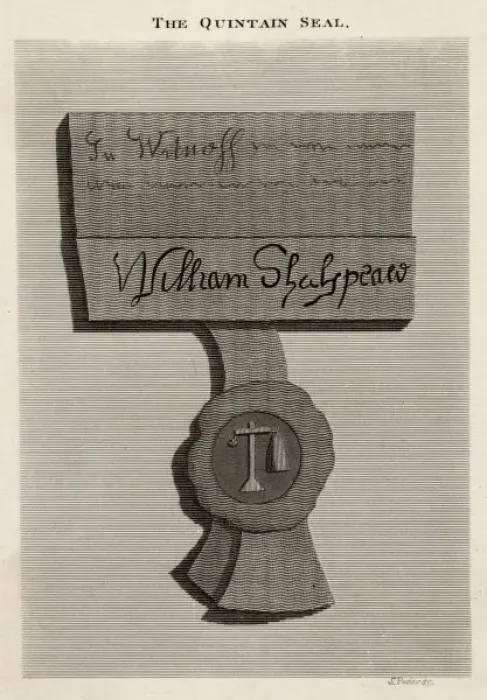 THE QUINTAIN SEAL.
In Witness
William Shakspeare